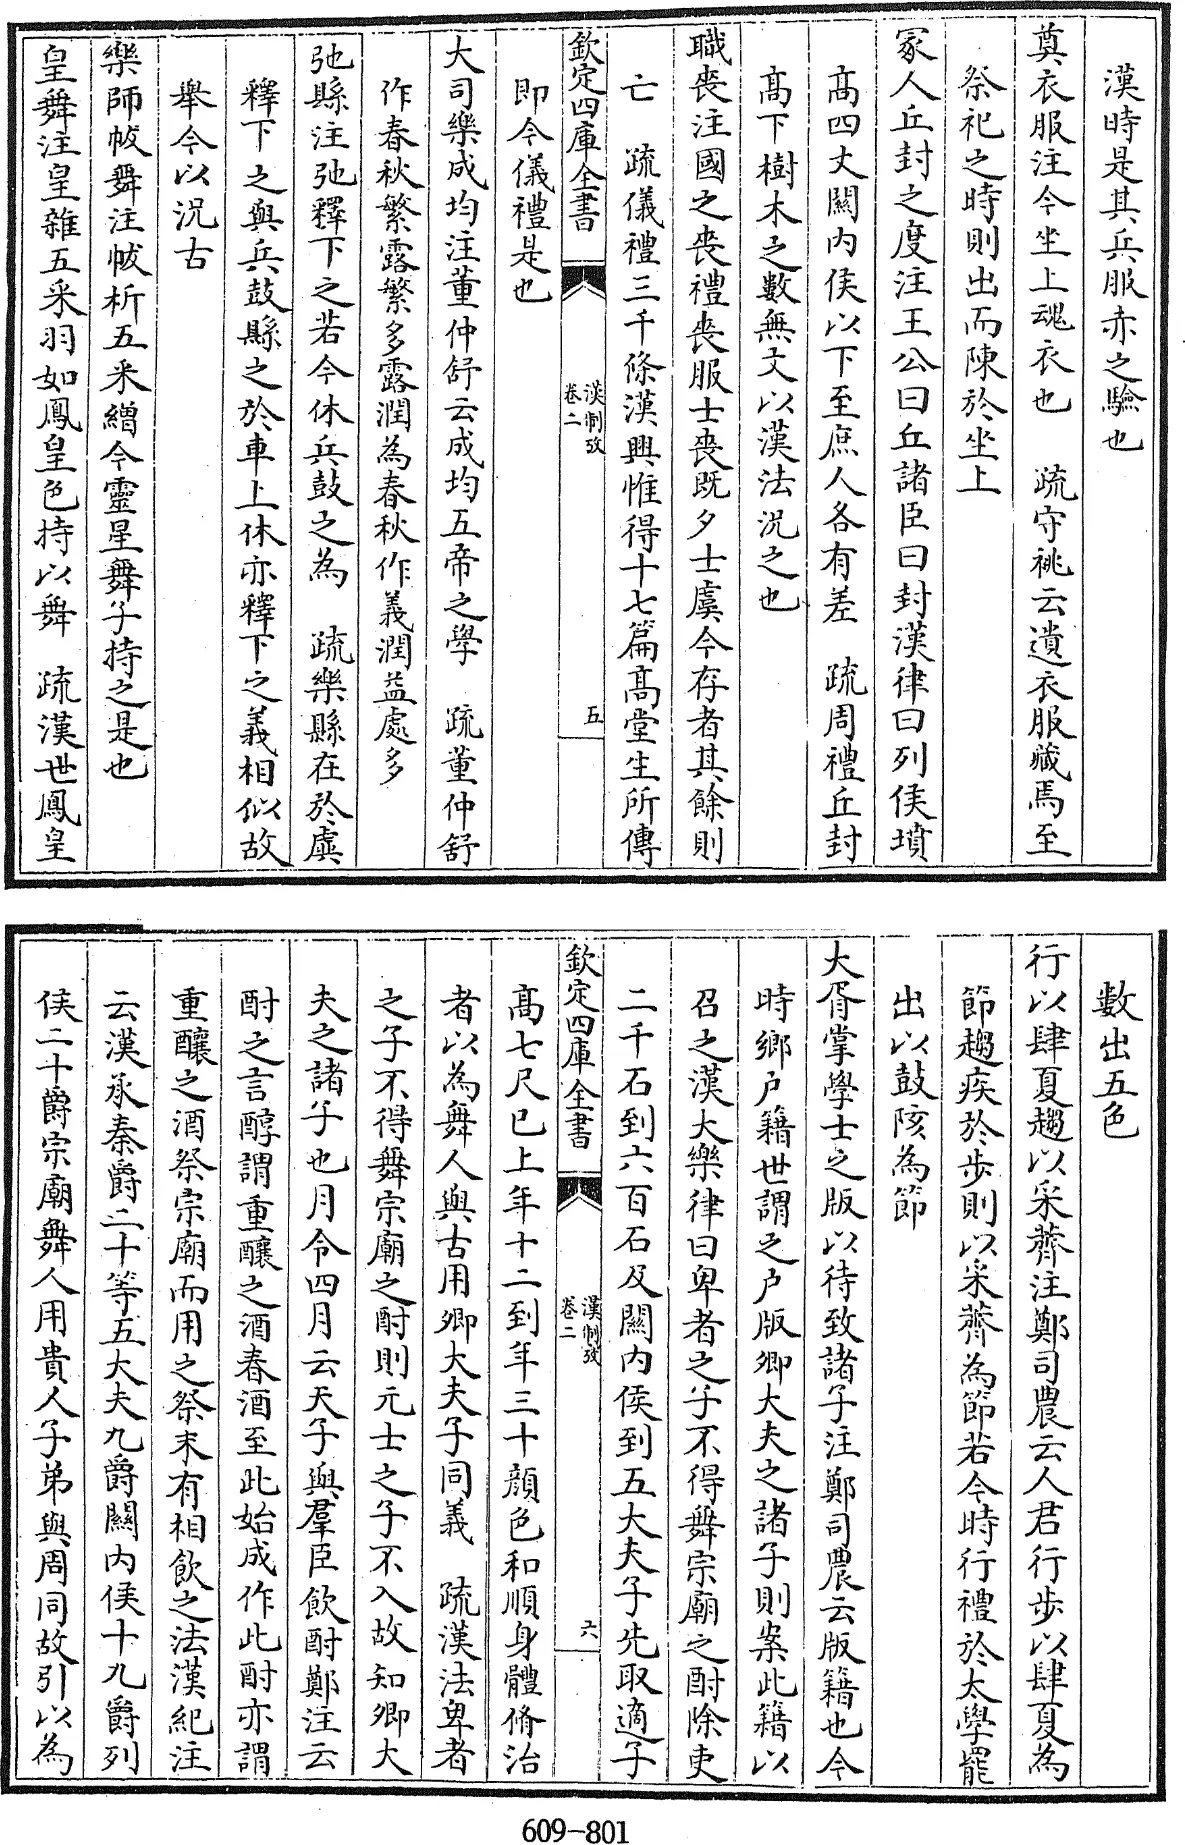 漢時是其兵服赤之驗也
奠衣服注今坐上魂衣也　疏守祧云遺衣服藏焉至
祭祀之時則出而陳於坐上
冢人丘封之度注王公曰丘諸臣曰封漢律曰列侯墳
高四丈關内侯以下至庶人各有差　疏周禮丘封
高下樹木之數無文以漢法況之也
職喪注國之喪禮喪服士喪既夕士虞今存者其餘則
亡　疏儀禮三千條漢興惟得十七篇高堂生所傳
欽定四庫全書
漢制攷
卷二
五
即今儀禮是也
大司樂成均注董仲舒云成均五帝之學　疏董仲舒
作春秋繁露繁多露潤為春秋作義潤益處多
弛縣注弛釋下之若今休兵鼓之為　疏樂縣在於虡
釋下之與兵鼓縣之於車上休亦釋下之義相似故
舉今以況古
樂師帗舞注帗析五采繒今靈星舞子持之是也
皇舞注皇雜五采羽如鳳皇色持以舞　疏漢世鳳皇
數出五色
行以肆夏趨以采薺注鄭司農云人君行步以肆夏為
節趨疾於步則以采薺為節若今時行禮於太學罷
出以鼓陔為節
大胥掌學士之版以待致諸子注鄭司農云版籍也今
時鄉户籍世謂之户版卿大夫之諸子則案此籍以
召之漢大樂律曰卑者之子不得舞宗廟之酎除吏
二千石到六百石及關内侯到五大夫子先取適子
欽定四庫全書
漢制攷
卷二
六
高七尺已上年十二到年三十顔色和順身體脩治
者以為舞人與古用卿大夫子同義　疏漢法卑者
之子不得舞宗廟之酎則元士之子不入故知卿大
夫之諸子也月令四月云天子與羣臣飲酎鄭注云
酎之言醇謂重釀之酒春酒至此始成作此酎亦謂
重釀之酒祭宗廟而用之祭末有相飲之法漢紀注
云漢承秦爵二十等五大夫九爵關内侯十九爵列
侯二十爵宗廟舞人用貴人子弟與周同故引以為
609-801